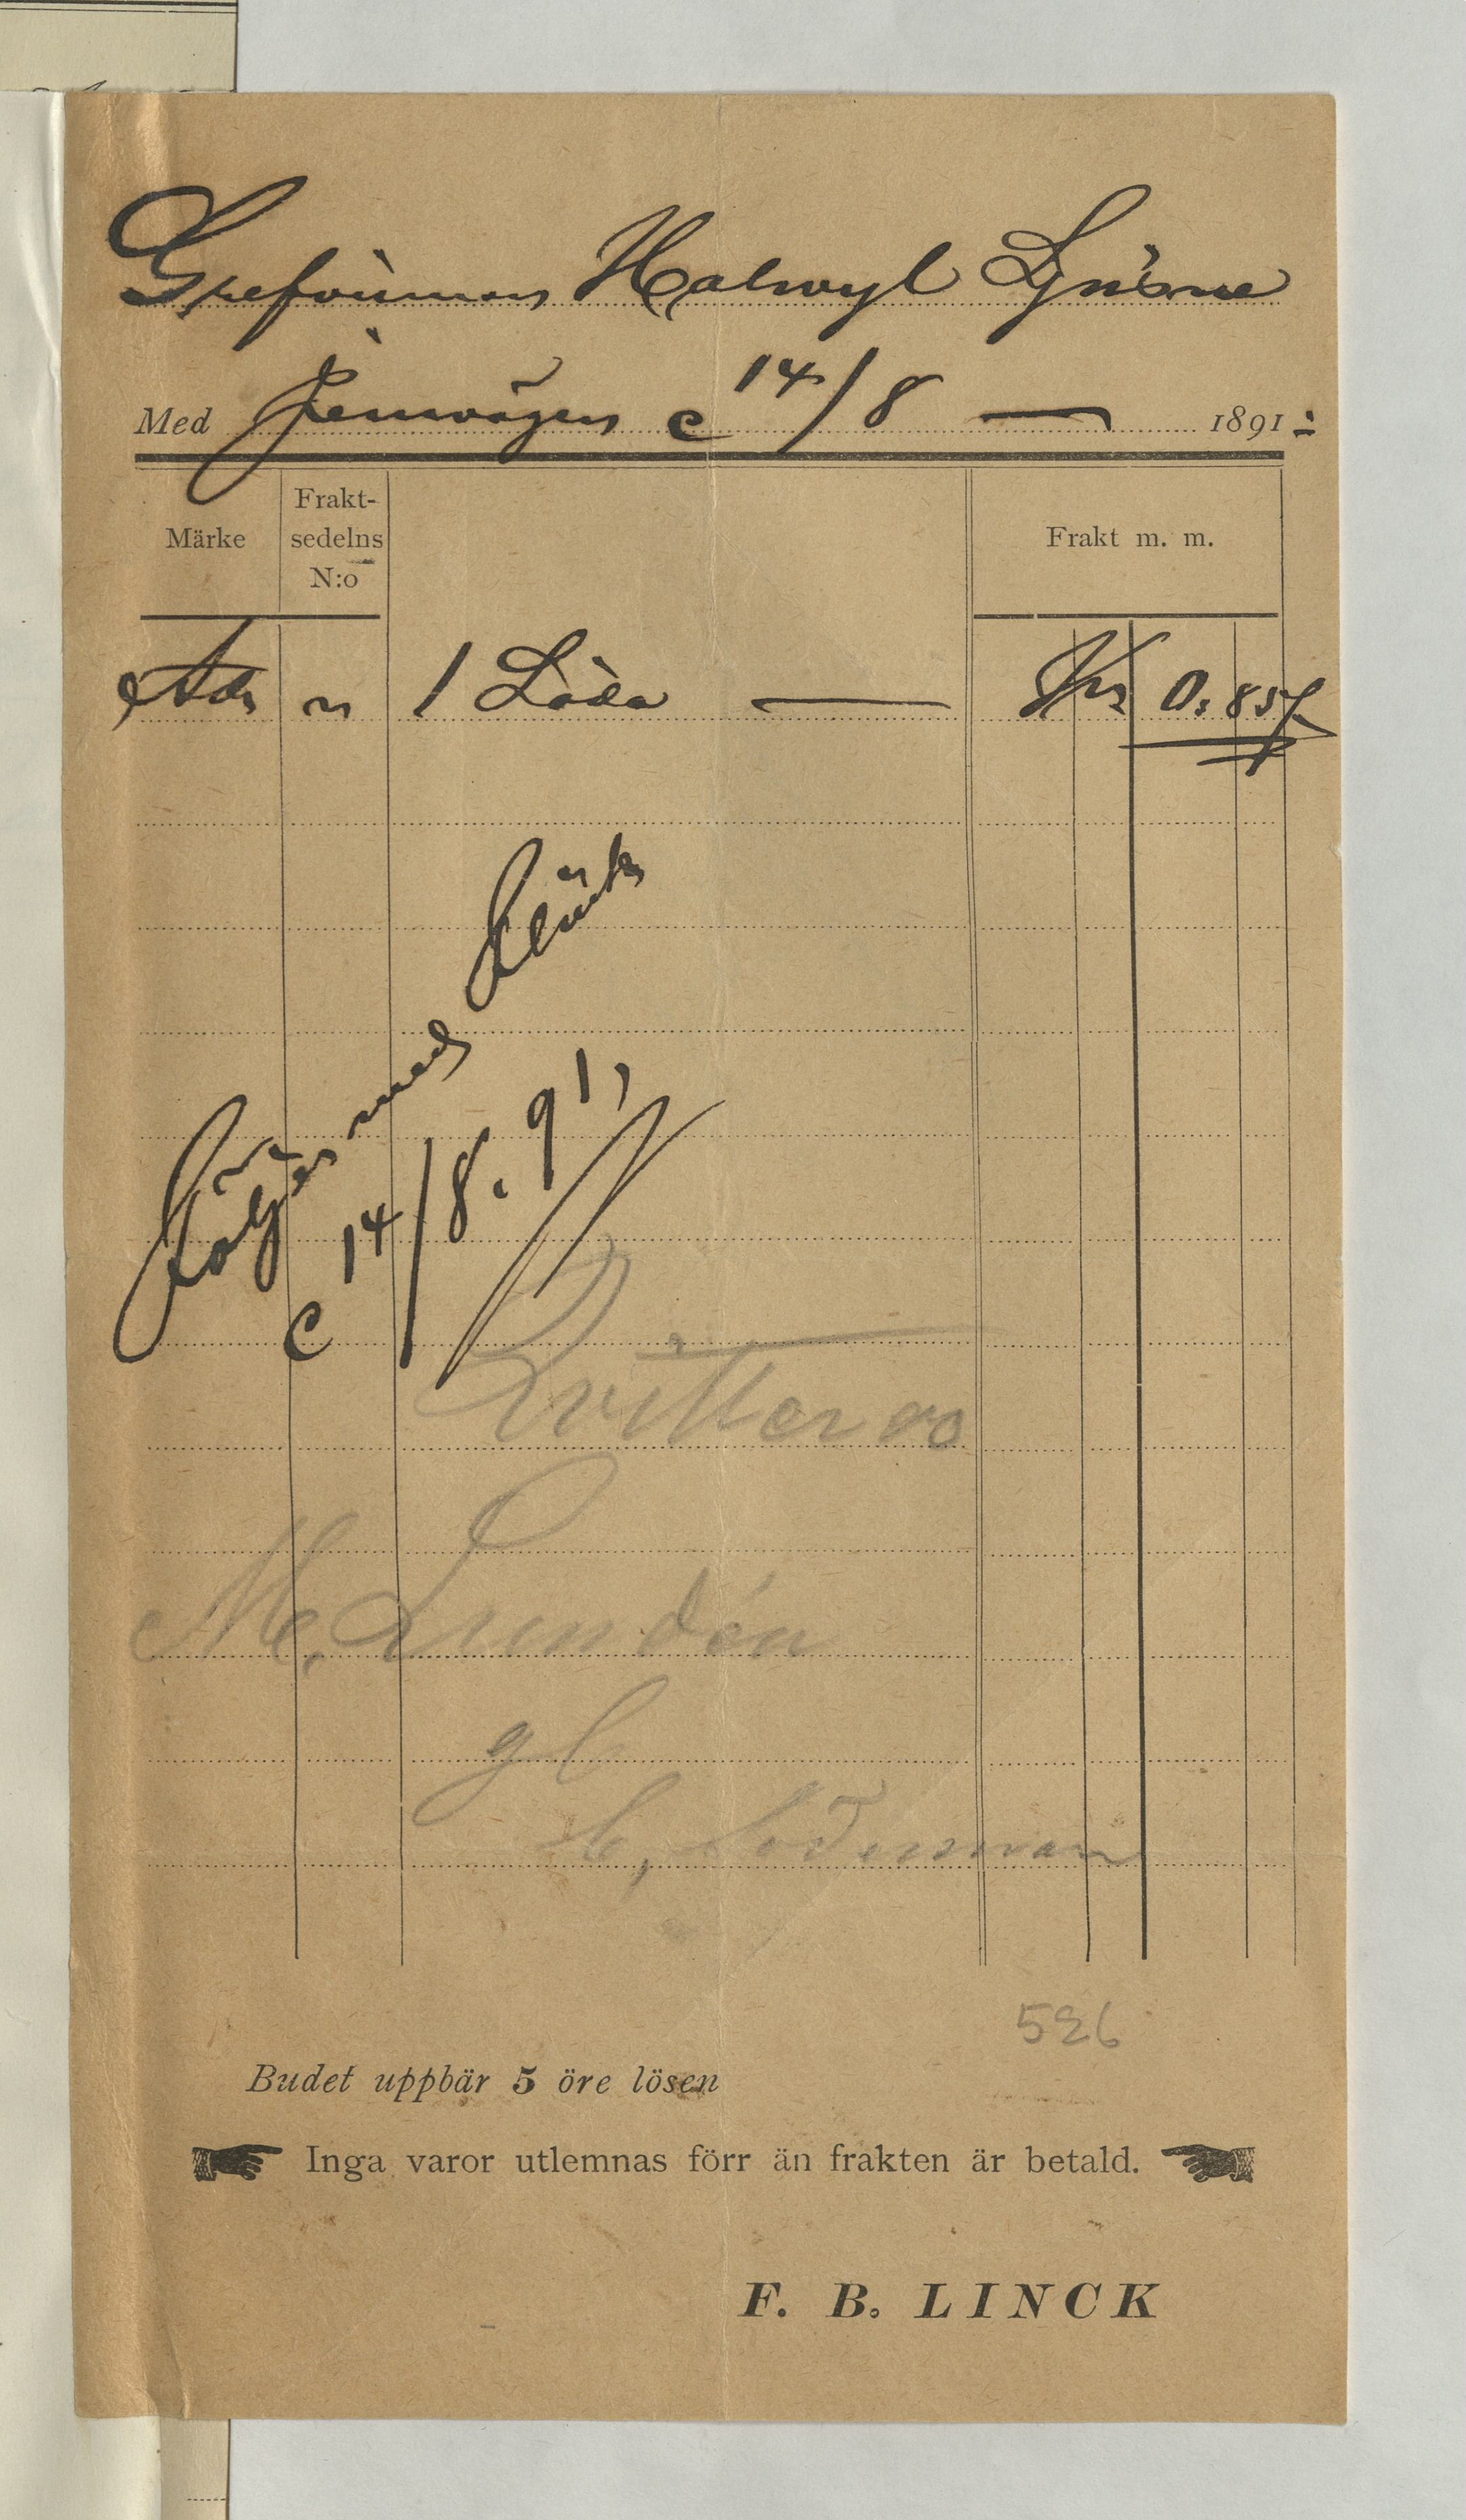 Grefvinnan Halwyl Ljusne
Med Jernvägen c 14/8 — 1891
Märke
Frakt-
sedelns
N:o
Frakt m. m.
Adr n 1 Låda — Kr 0: 85
Följer med
c 14/8. 91,
Qvitteras
M. Lundén
gl
C, Söderman
526
Budet uppbär 5 öre lösen
Inga varor utlemnas förr än frakten är betald.
F. B. LINCK